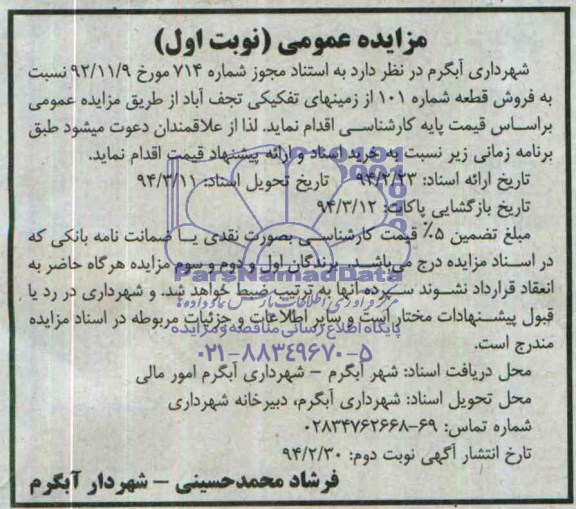 مزایده عمومی (نوبت اول)
شهرداری آبگرم در نظر دارد به استناد مجوز شماره ۷۱۴ مورخ ۹۲/۱۱/۹ نسبت
به فروش قطعه شماره ۱۰۱ از زمینهای تفکیکی نجف آباد از طریق مزایده عمومی
براساس قیمت پایه کارشناسی اقدام نماید. لذا از علاقمندان دعوت میشود طبق
برنامه زمانی زیر نسبت به خرید اسناد و ارائه پیشنهاد قیمت اقدام نماید.
تاریخ ارائه اسناد: ۹۴/۲/۲۳ تاریخ تحویل اسناد: ۹۴/۳/۱۱
تاریخ بازگشایی پاکات: ۹۴/۳/۱۲
مبلغ تضمین ۵٪ قیمت کارشناسی بصورت نقدی یا ضمانت نامه بانکی که
در اسناد مزایده درج می‌باشد. برندگان اول و دوم و سوم مزایده هرگاه حاضر به
ParsNamadData
انعقاد قرارداد نشوند سپرده آنها به ترتیب ضبط خواهد شد. و شهرداری در رد یا
قبول پیشنهادات مختار است و سایر اطلاعات و جزئیات مربوطه در اسناد مزایده
پایگاه اطلاع رسانی مناقصه و مزایده
مندرج است.
۰۲۱-۸۸۳۴۹۶۷۰-۵
محل دریافت اسناد: شهر آبگرم – شهرداری آبگرم امور مالی
محل تحویل اسناد: شهرداری آبگرم، دبیرخانه شهرداری
شماره تماس: ۶۹-۰۲۸۳۴۷۶۲۶۶۸
تارخ انتشار آگهی نوبت دوم: ۹۴/۲/۳۰
فرشاد محمدحسینی – شهردار آبگرم